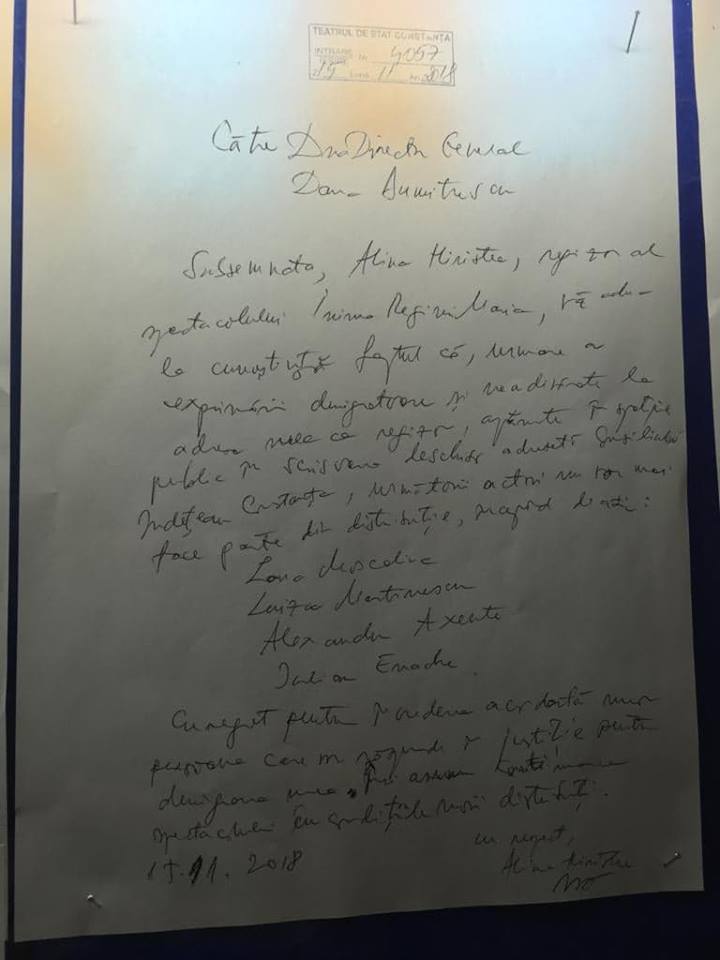 TEATRUL DE STAT CONSTANȚA
INTRARE Nr. 4057
Ziua 15 Luna 11 An 2018
Către Dna Director General
Dana Dumitrescu
Subsemnata, Alina Hiristea, regizor al
spectacolului Inima Reginei Maria, vă aduc
la cunoștință faptul că, urmare a
exprimării denigratoare și neadevărate la
adresa mea ca regizor, apărute în spațiu
public în scrisoarea deschisă adresată Consiliului
Județean Constanța, următorii actori nu vor mai
face parte din distribuție, începând de azi:
Lana Moscaliuc
Luiza Martinescu
Alexandru Axente
Iulian Enache
Cu regret pentru încrederea acordată unor
persoane care vor răspunde în justiție pentru
denigrarea mea. Îmi asum continuarea
spectacolului în condițiile noii distribuții.
15.11.2018
cu respect,
Alina Hiristea